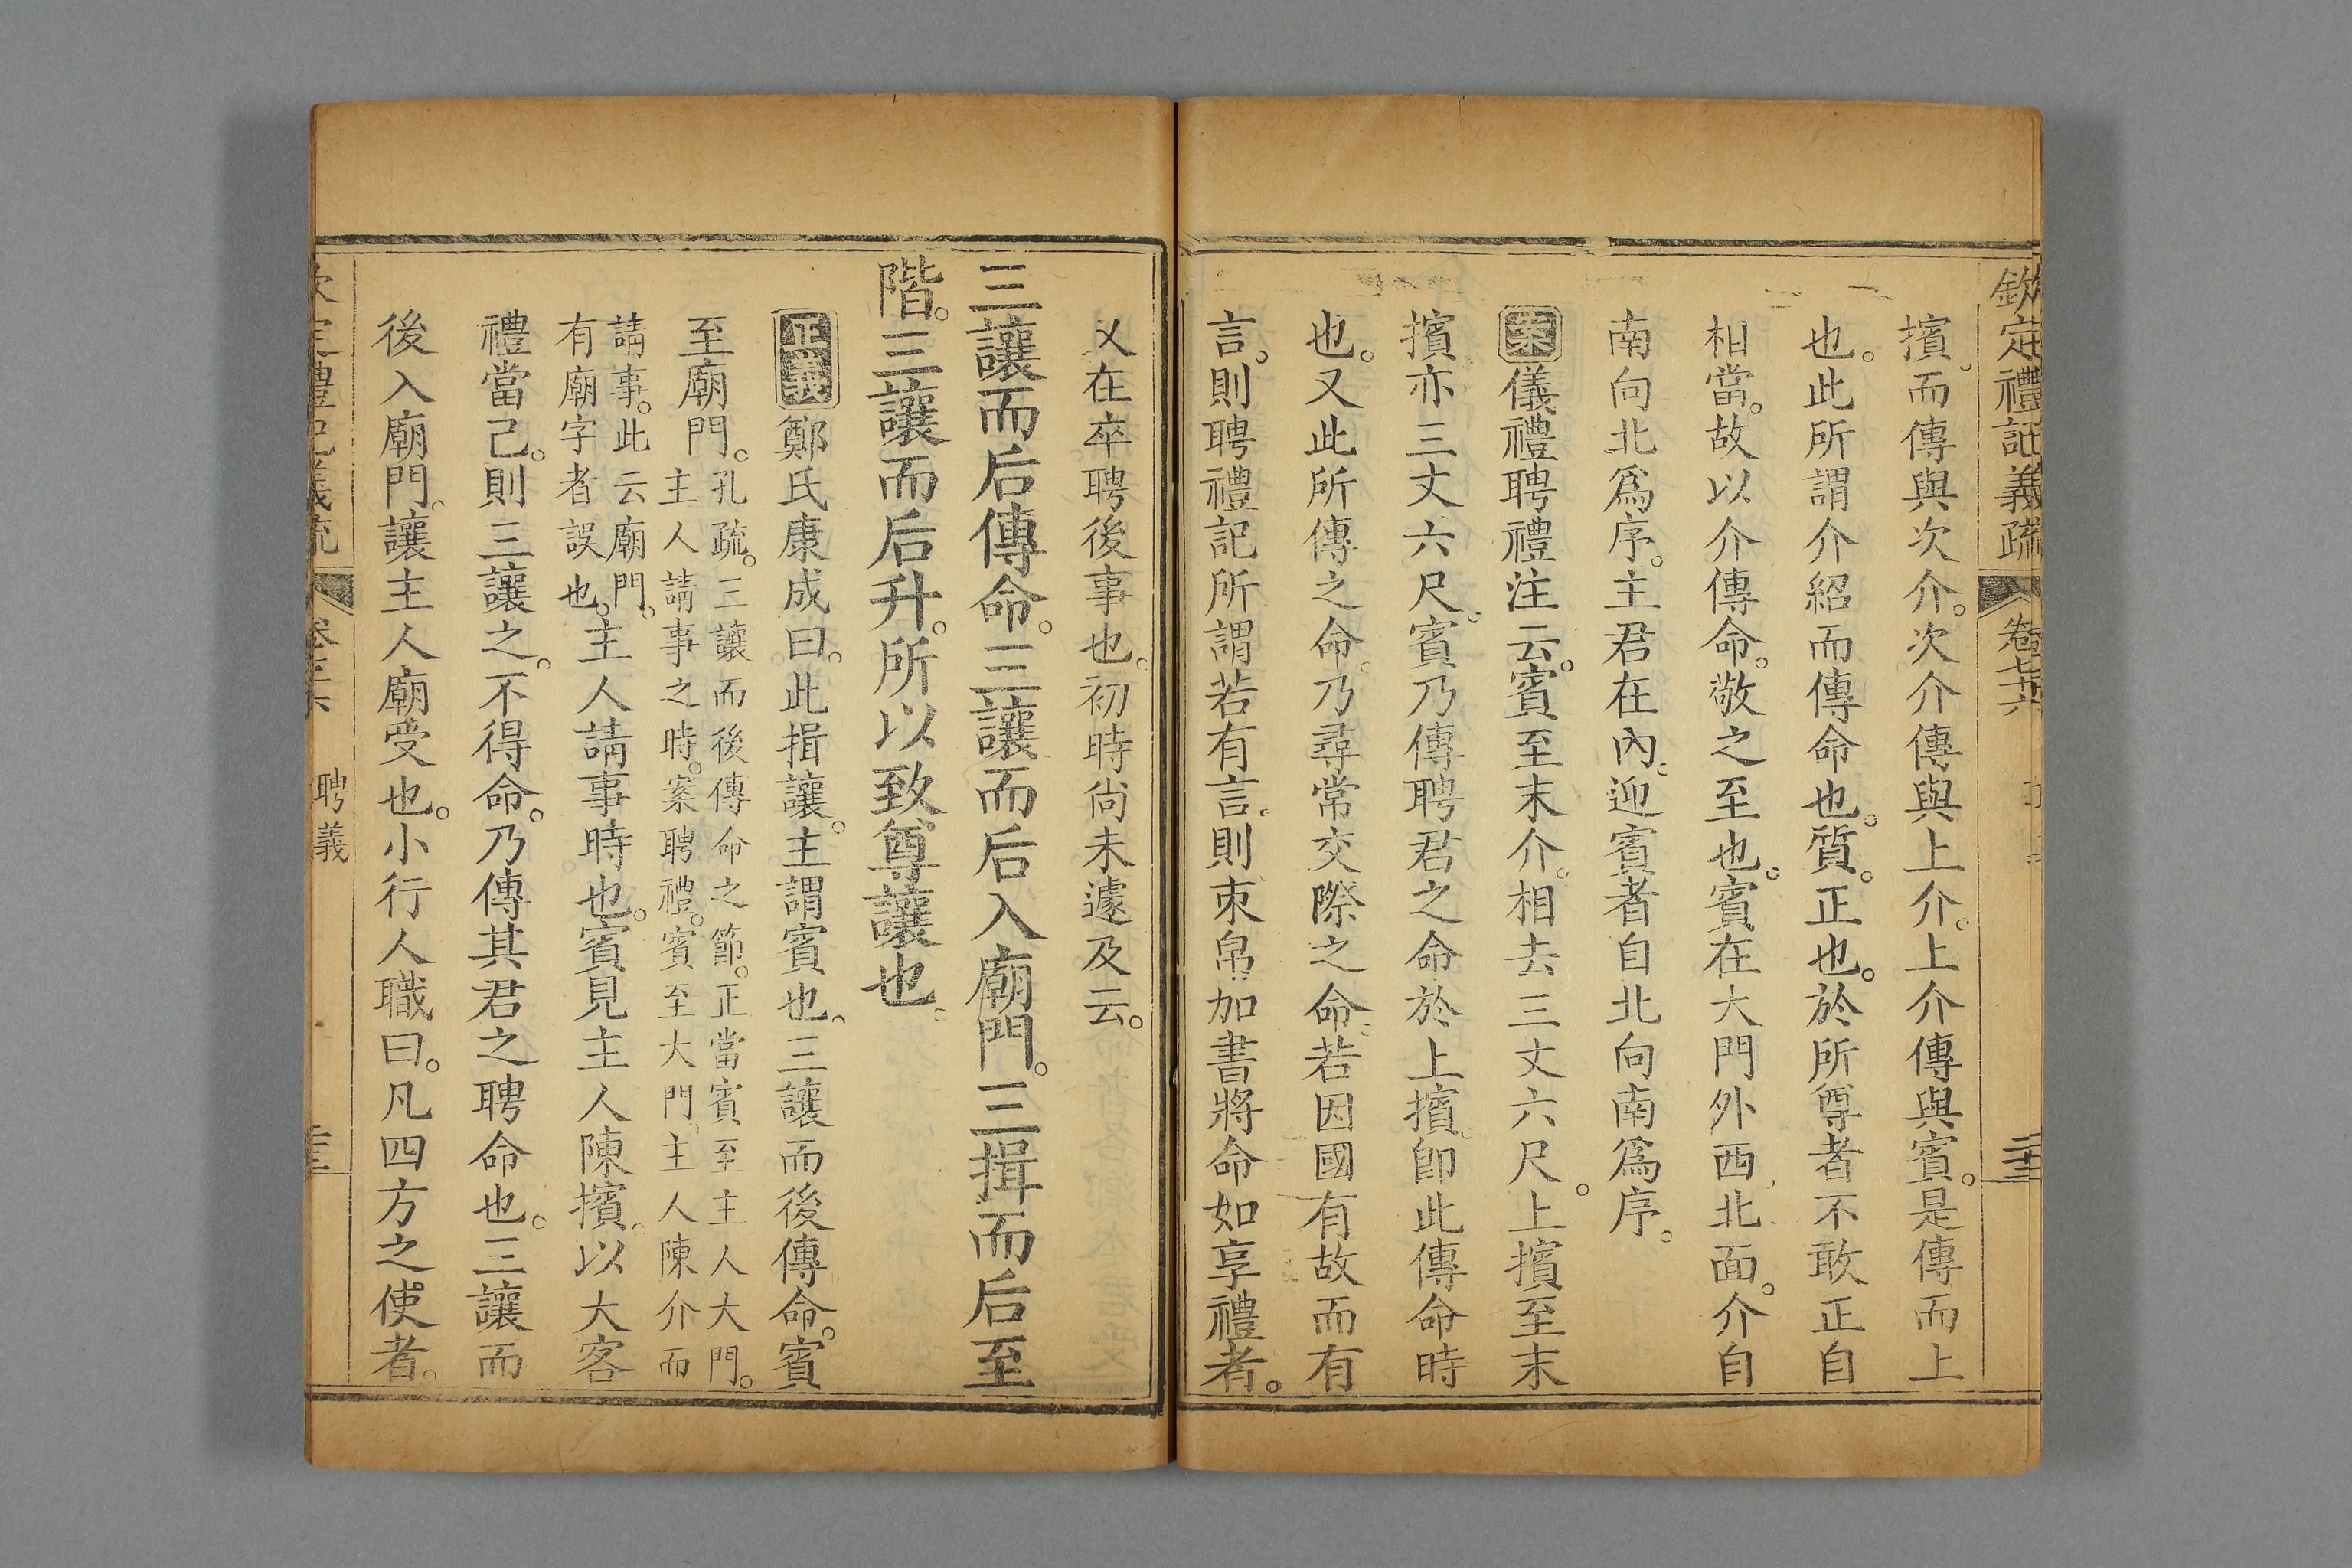 欽定禮記義疏 卷七十六
擯。而傳與次介。次介傳與上介。上介傳與賓。是傳而上
也。此所謂介紹而傳命也。質。正也。於所尊者不敢正自
相當。故以介傳命。敬之至也。賓在大門外西北面。介自
南向北爲序。主君在內。迎賓者自北向南爲序。
案儀禮聘禮注云。賓至末介。相去三丈六尺。上擯至末
擯亦三丈六尺。賓乃傳聘君之命於上擯。卽此傳命時
也。又此所傳之命。乃尋常交際之命。若因國有故而有
言。則聘禮記所謂若有言。則束帛加書將命如享禮者。
又在卒聘後事也。初時尙未遽及云。
三讓而后傳命。三讓而后入廟門。三揖而后至
階。三讓而后升。所以致尊讓也。
正義鄭氏康成曰。此揖讓。主謂賓也。三讓而後傳命。賓
至廟門。孔疏。三讓而後傳命之節。正當賓至主人大門。
主人請事之時。案聘禮。賓至大門。主人陳介而
請事。此云廟門。
有廟字者誤也。主人請事時也。賓見主人陳擯。以大客
禮當己。則三讓之。不得命。乃傳其君之聘命也。三讓而
後入廟門。讓主人廟受也。小行人職曰。凡四方之使者。
定禮記義疏 聘義